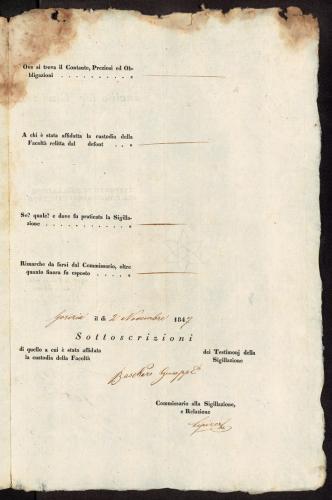 Ove si trova il Contante, Preziosi ed Ob-
bligazioni . . . . . . . . . .
A chi è stata affidata la custodia della
Facoltà relitta dal defont . . .
Se? quale? e dove fu praticata la Sigilla-
zione . . . . . . . . . . .
Rimarche da farsi dal Commissario, oltre
quanto finora fu esposto . . . . .
Gorizia il di 2 Novembre 1847
Sottoscrizioni
di quello a cui è stata affidata
la custodia della Facoltà
dei Testimonj della
Sigillazione
Giuseppe
Commissario alla Sigillazione,
e Relazione